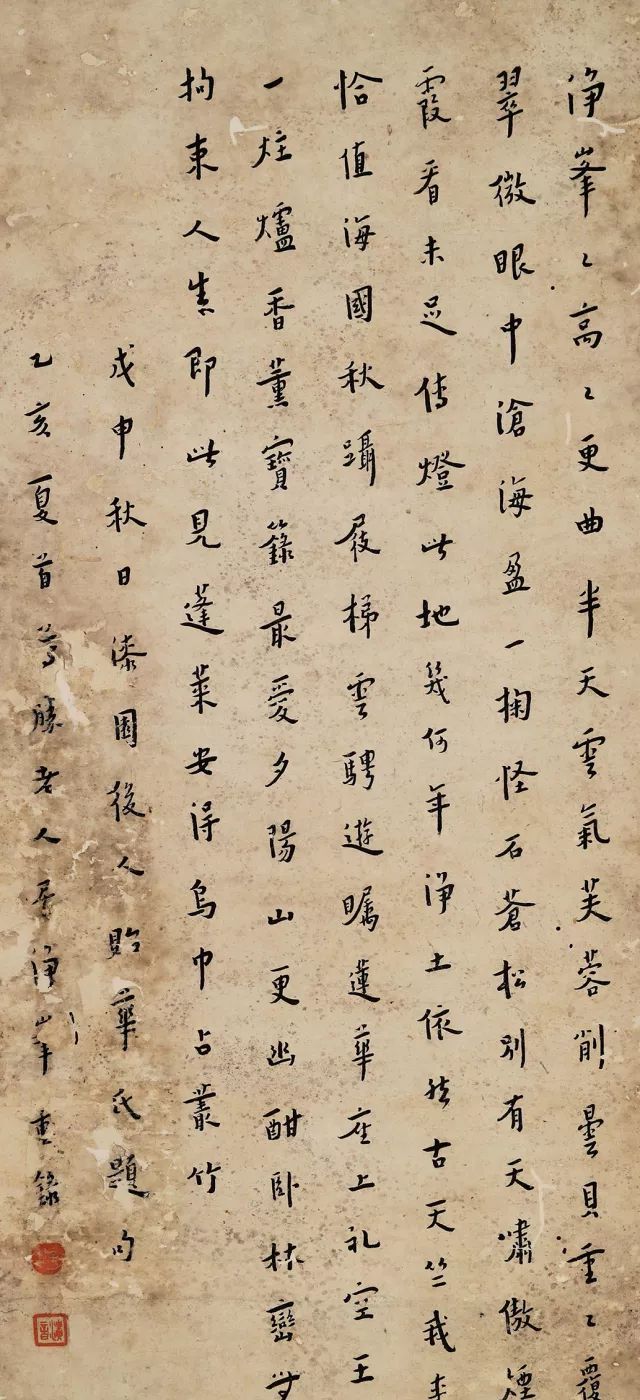 淨峯〻高〻更曲半天雲氣芙蓉削曇貝重〻覆
翠微眼中滄海盈一掬怪石蒼松別有天嘯傲煙
霞看未足傳燈此地幾何年淨土依然古天竺我來
恰值海國秋躡屐梯雲騁遊矚蓮華座上礼空王
一炷爐香薰寶籙最愛夕陽山更幽酣臥林巒無
拘束人生即此見蓬萊安得烏巾占叢竹
戊申秋日漆園後人貽華氏題句
乙亥夏首尊勝老人居淨峯重錄
演音